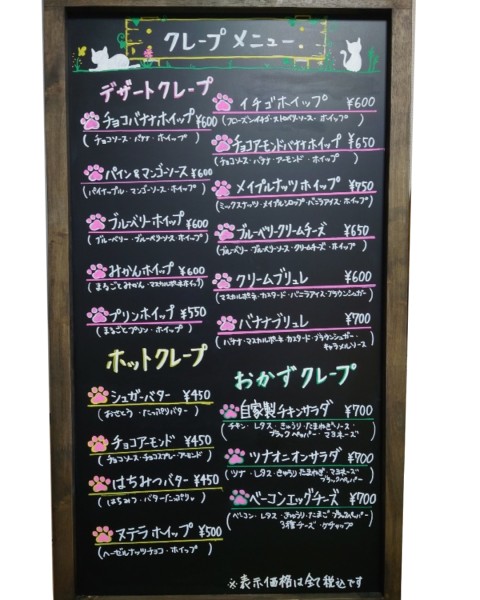 クレープメニュー
デザートクレープ
チョコバナナホイップ ¥600
(チョコソース・バナナ・ホイップ)
パイン&マンゴーソース ¥600
(パイナップル・マンゴーソース・ホイップ)
ブルーベリーホイップ ¥600
(ブルーベリー・ブルーベリーソース・ホイップ)
みかんホイップ ¥600
(まるごとみかん・マスカルポーネホイップ)
プリンホイップ ¥550
(まるごとプリン・ホイップ)
イチゴホイップ ¥600
(フローズンイチゴ・ストロベリーソース・ホイップ)
チョコアーモンドバナナホイップ ¥650
(チョコソース・バナナ・アーモンド・ホイップ)
メイプルナッツホイップ ¥750
(ミックスナッツ・メイプルシロップ・バニラアイス・ホイップ)
ブルーベリークリームチーズ ¥650
(ブルーベリー・ブルーベリーソース・クリームチーズ・ホイップ)
クリームブリュレ ¥600
(マスカルポーネ・カスタード・バニラアイス・ブラウンシュガー)
バナナブリュレ ¥700
(バナナ・マスカルポーネ・カスタード・ブラウンシュガー・
キャラメルソース)
ホットクレープ
シュガーバター ¥450
(おさとう・たっぷりバター)
チョコアーモンド ¥450
(チョコソース・チョコスプレー・アーモンド)
はちみつバター ¥450
(はちみつ・バターたっぷり)
ヌテラホイップ ¥500
(ヘーゼルナッツチョコ・ホイップ)
おかずクレープ
自家製チキンサラダ ¥700
(チキン・レタス・きゅうり・たまねぎソース・
ブラックペッパー・マヨネーズ)
ツナオニオンサラダ ¥700
(ツナ・レタス・きゅうり・たまねぎ・マヨネーズ
ブラックペッパー)
ベーコンエッグチーズ ¥700
(ベーコン・レタス・きゅうり・たまご・ブラックペッパー・
3種チーズ・ケチャップ)
※表示価格は全て税込です